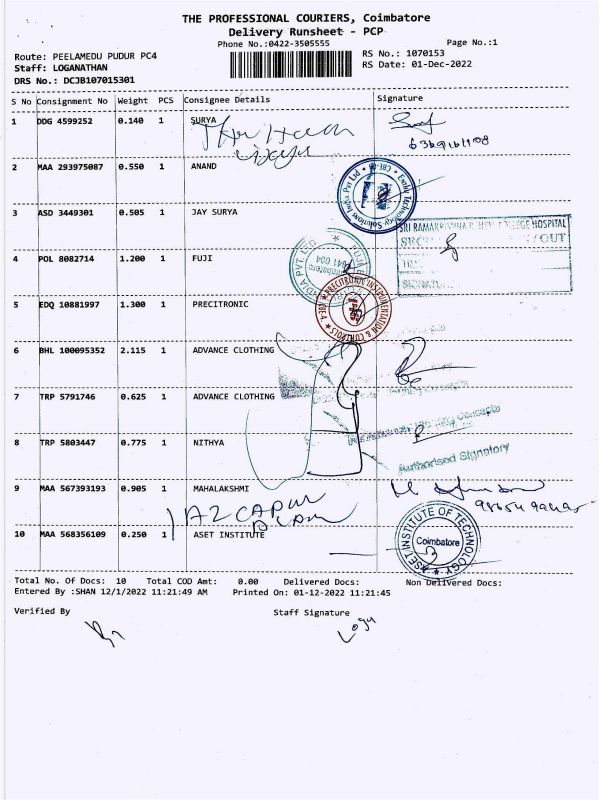 THE PROFESSIONAL COURIERS, Coimbatore
Delivery Runsheet - PCP
Phone No.:0422-3505555
Page No.:1
Route: PEELAMEDU PUDUR PC4
RS No.: 1070153
Staff: LOGANATHAN
RS Date: 01-Dec-2022
DRS No.: DCJB107015301
S No Consignment No Weight PCS Consignee Details Signature
1 DDG 4599252 0.140 1 SURYA
2 MAA 293975087 0.550 1 ANAND
3 ASD 3449301 0.505 1 JAY SURYA
SRI RAMAKRISHNA HOSPITAL
/ OUT
4 POL 8082714 1.200 1 FUJI
641 004
5 EDQ 10881997 1.300 1 PRECITRONIC
PRECITRONIC INSTRUMENTATION & CONTROLS
6 BHL 100095352 2.115 1 ADVANCE CLOTHING
7 TRP 5791746 0.625 1 ADVANCE CLOTHING
8 TRP 5803447 0.775 1 NITHYA
Authorised Signatory
9 MAA 567393193 0.905 1 MAHALAKSHMI
10 MAA 568356109 0.250 1 ASET INSTITUTE
ASET INSTITUTE OF TECHNOLOGY
Coimbatore
Total No. Of Docs: 10 Total COD Amt: 0.00 Delivered Docs: Non Delivered Docs:
Entered By :SHAN 12/1/2022 11:21:49 AM Printed On: 01-12-2022 11:21:45
Verified By Staff Signature
Logu